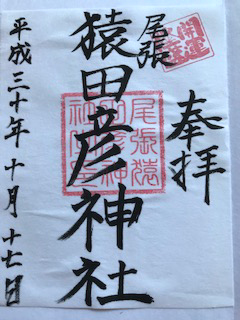 開運
奉拝
尾張
猿田彦神社
尾張猿田彦神社
平成三十年十月十七日